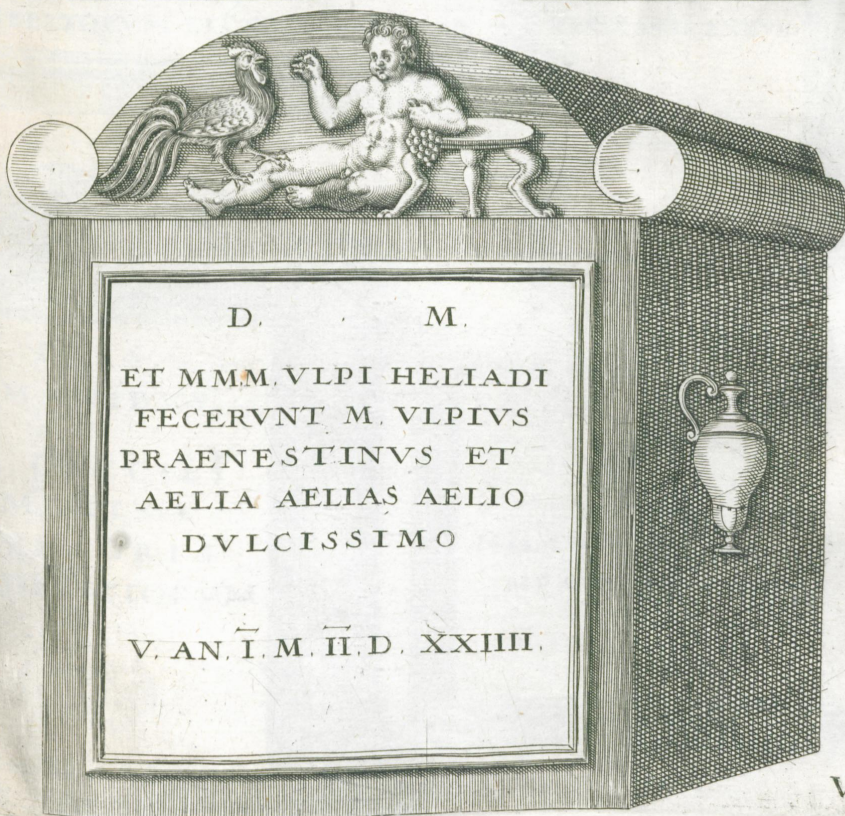 D. M.
ET MMM. VLPI HELIADI
FECERVNT M. VLPIVS
PRAENESTINVS ET
AELIA AELIAS AELIO
DVLCISSIMO
V. AN. I. M. II. D. XXIIII.
V